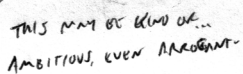 THIS MAY BE KIND OF...
AMBITIOUS, EVEN ARROGANT-